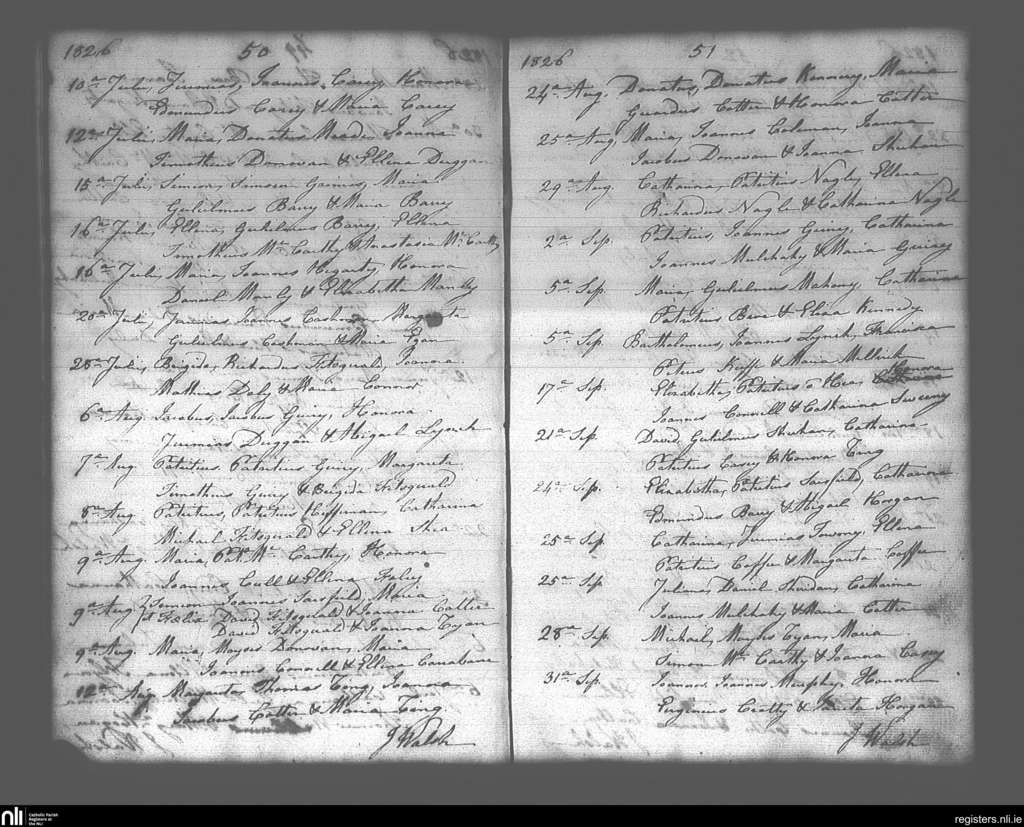 1826 50
10a Julii, Jeremias, Joannes Carey, Honora
Edmundus Carey & Maria Carey
12a Julii, Maria, Donatus Meade, Joanna
Timotheus Donovan & Ellena Duggan
15a Julii, Simon, Simeon, Maria
Gulielmus Barry & Maria Barry
16a Julii, Ellena, Gulielmus Barry, Ellena
Timotheus Mc Carthy & Anastasia Mc Carthy
16a Julii, Maria, Joannes Hegarty, Honora
Daniel Manly & Elizabetha Manly
20a Julii, Jeremias Joannes Cashman, Margareta
Gulielmus Cashman & Maria Egan
25a Julii, Brigida, Richardus Fitzgerald, Joanna
Matthias Daly & Maria Connor
6a Aug. Jacobus, Jacobus Guiry, Honora
Jeremias Duggan & Abigail Lynch
7a Aug. Patritius Patritius Guiry, Margareta
Timotheus Guiry & Brigida Fitzgerald
8a Aug. Patritius, Patritius Heffernan, Catharina
Michael Fitzgerald & Ellena Shea
9a Aug. Maria, Patk Mc Carthy, Honora
Joannes Cull & Ellena
9a Aug. Joannes Sarsfield, Maria
David Fitzgerald & Joanna
David Fitzgerald & Joanna
9a Aug. Maria, Donovan, Maria
Joannes Connell & Ellena
12a Aug. Margareta, Thomas Tong, Joanna
Jacobus Cotter & Maria Tong
J Walsh
1826 51
24a Aug. Donatus, Donatus, Maria
Gerardus Cotter & Honora Cotter
25a Aug. Maria, Joannes Coleman, Joanna
Jacobus Donovan & Joanna Sheehan
29a Aug. Catharina, Patritius Nagle, Ellena
Richardus Nagle & Catharina Nagle
2a Sep. Patritius, Joannes Guiry, Catharina
Joannes Mulchahy & Maria Guiry
5a Sep. Maria, Gulielmus Mahony, Catharina
Patritius & Eliza Kennedy
5a Sep. Bartholomeus, Joannes Lynch, Francisca
Petrus Keeffe & Maria
Honora
17a Sep. Elizabetha, Patritius o Hea,
Joannes Connell & Catharina Sweeny
21a Sep. David, Gulielmus Sheehan, Catharina
Patritius Casey & Honora Tong
24a Sep. Elizabetha, Patritius Sarsfield, Catharina
Edmundus Barry & Abigail Horgan
25a Sep. Catharina, Jeremias, Ellena
Patritius Coffee & Margareta Coffee
25a Sep. Daniel Sheridan, Catharina
Joannes Mulchahy & Maria Cotter
28a Sep. Michael, Maria
Simon Mc Carthy & Joanna Casey
31a Sep. Joannes Joannes Murphy, Honora
Eugenius & Horgan
J Walsh
nli Catholic Parish
Registers at
the NLI
registers.nli.ie